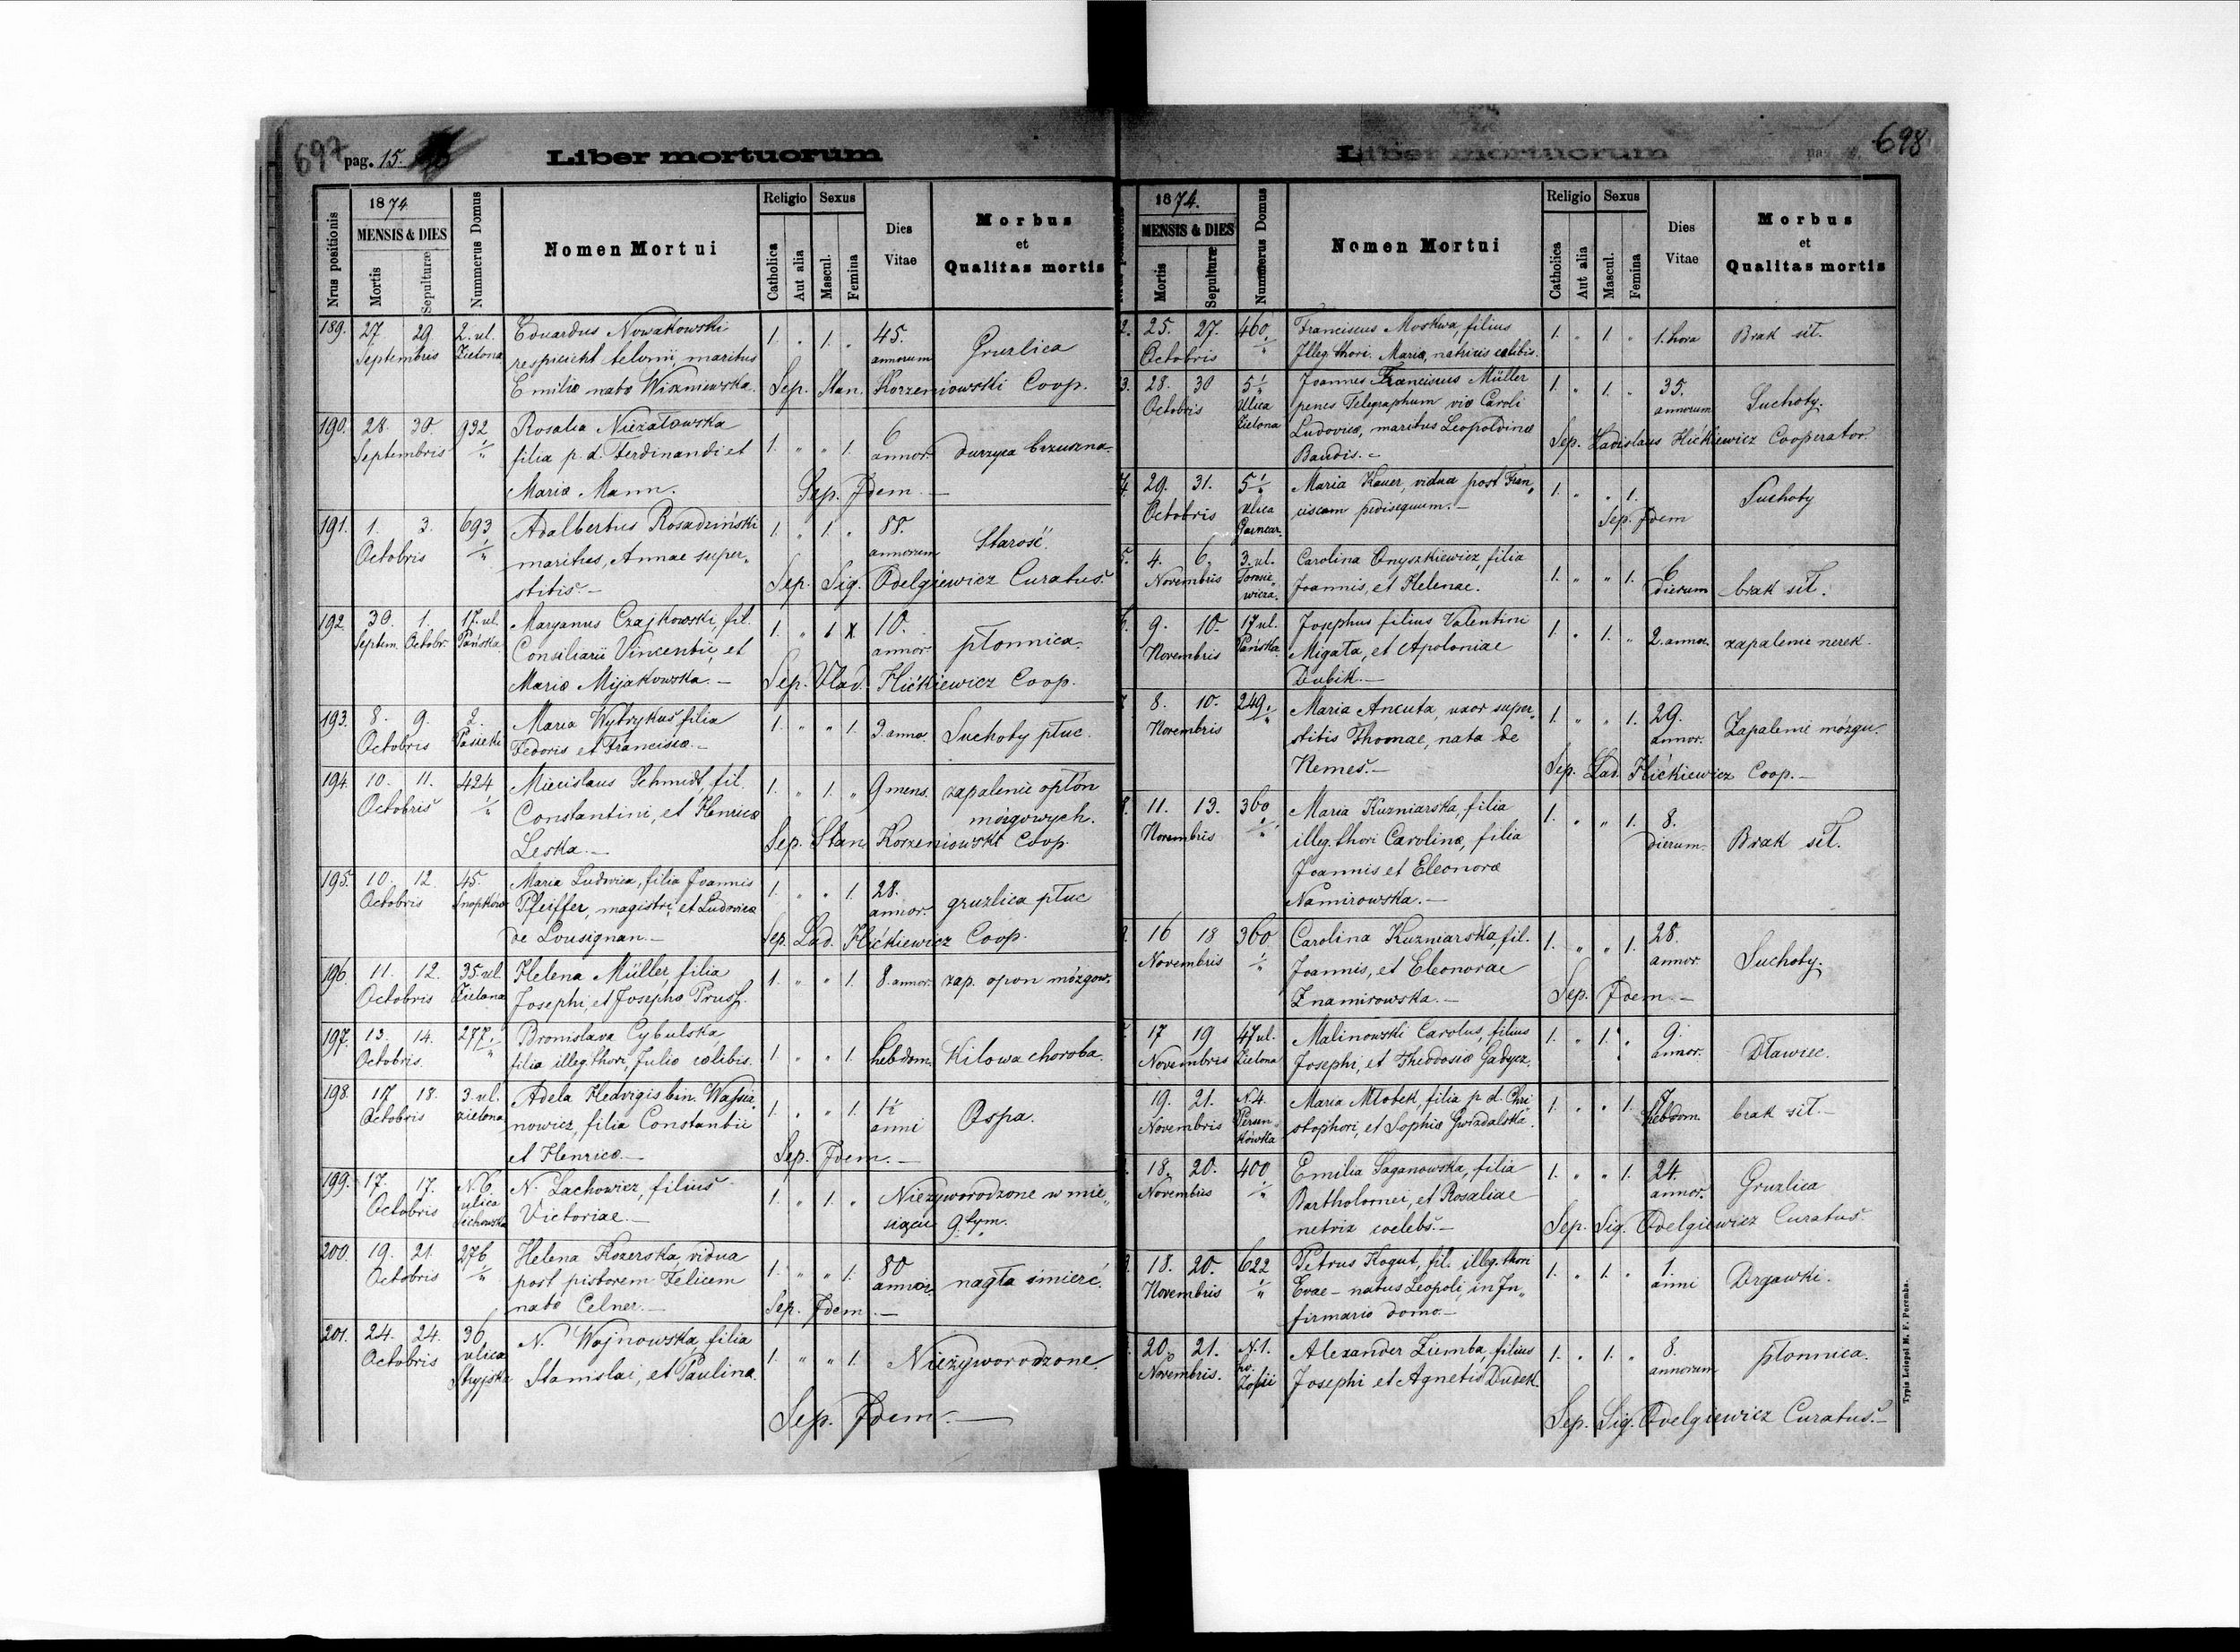 697 pag. 15. Liber mortuorum
Nrus positionis
1874
MENSIS & DIES
Mortis
Sepulturæ
Nummerus Domus
Nomen Mortui
Religio
Catholica
Aut alia
Sexus
Mascul.
Femina
Dies
Vitae
Morbus
et
Qualitas mortis
189. 27 29. 2. ul. Eduardus Nowakowski 1. " 1. " 45. Gruzlica
Septembris Zielona respicient telonii, maritus annorum
Emiliæ nata Wiszniewska. Sep. Stan. Korzeniowski Coop.
190. 28. 30. 932 Rosalia Niezatowska 1. " " 1. 6 durzyca brzuszna.
Septembris 1/" filia p. d. Ferdinandi et annor.
Maria Mann. Sep. Idem.—
191. 1. 3. 693 Adalbertus Rosadziński 1. " 1. " 88. Starość.
Octobris 1/" maritus, Annae super„ annorum
stitis.— Sep. Sig. Odelgiewicz Curatus.
192. 30. 1. 17. ul. Maryanus Czajkowski, fil. 1. " 1 X 10. płonnica.
Septem. Octobr. Pańska. Consiliarii Vincentii, et annor.
Maria Mijakowska.— Sep. Vlad. Hićkiewicz Coop.
193. 8. 9. 2. Maria Wybrykus filia 1. " " 1. 3. anno. Suchoty płuc.
Octobris Pasieki Fedoris et Francisca.—
194. 10. 11. 424 Miecislaus Schmidt, fil. 1. " 1. " 9 mens. zapalenie opłon
Octobris 1/" Constantini, et Henrica mózgowych.
Leska.— Sep. Stan. Korzeniowski Coop.
195. 10. 12. 45. Maria Ludwica, filia Joannis 1. " " 1. 28. gruzlica płuc
Octobris Snopków Pfeiffer, magistri, et Ludovica annor.
de Lousignan.— Sep. Lad. Hićkiewicz Coop.
196. 11. 12. 35. ul. Helena Müller, filia 1. " " 1. 8. annor. zap. opon mózgow.
Octobris Zielona Josephi, et Josepha Pruss.
197. 13. 14. 277. Bronislava Cybulska 1. " " 1. 6 Kilowa choroba.
Octobris. 1/" filia illeg. thori, Julia cœlibis. hebdom.
198. 17 18. 3. ul. Adela Hedvigis bin. Wassie„ 1. " " 1. 1½ Ospa.
Octobris zielona nowicz, filia Constantii anni
et Henrica.— Sep. Idem.—
199. 17. 17. N. 6 N. Lachowicz, filius 1. " 1. " Nieżyworodzone w mie„
Octobris ulica Victoriae.— siącu 9. tym.
200. 19. 21. 276 Helena Kozerska, vidua 1. " " 1. 80 nagła śmierć.
Octobris 1/" post pistorem Felicem annor.
nata Celner.— Sep. Idem.—
201. 24. 24. 36 N. Wojnowska, filia 1. " " 1. Nieżyworodzone.
Octobris ulica Stanislai, et Paulina.
Stryjska
Sep. Idem.—
Liber mortuorum 698
1874.
MENSIS & DIES
Mortis
Sepulturæ
Nummerus Domus
Nomen Mortui
Religio
Catholica
Aut alia
Sexus
Mascul.
Femina
Dies
Vitae
Morbus
et
Qualitas mortis
2. 25. 27. 460 Franciscus Moskwa, filius 1. " 1. " 1. hora Brak sił.
Octobris 1/" Illeg. thori. Maria, nutricis cœlibis.
3. 28. 30 5 1/" Joannes Franciscus Müller 1. " 1. " 35. Suchoty.
Octobris Ulica penes Telegraphum via Caroli annorum
Zielona Ludovica, maritus Leopoldina Sep. Ladislaus Hićkiewicz Cooperator.
Baudis.—
4. 29. 31. 5 1/" Maria Kauer, vidua post Fran„ 1. " " 1. Suchoty
Octobris ulica ciscum pedisequum.— Sep. Idem
5. 4. 6. 3. ul. Carolina Onyszkiewicz, filia 1. " " 1. 6 brak sił.
Novembris Joannis, et Helenae. dierum
6. 9. 10. 17 ul. Josephus filius Valentini 1. " 1. " 2. annor. zapalenie nerek.
Novembris Pańska. Migata, et Apoloniae
Dubik.—
8. 10. 249. Maria Ancuta, uxor super„ 1. " " 1. 29. Zapalenie mózgu.
Novembris 1/" stitis Thomae, nata de annor.
Nemes.— Sep. Lad. Hićkiewicz Coop.—
11. 13. 360 Maria Kuzniarska, filia 1. " " 1. 8. Brak sił.
Novembris 1/" illeg. thori Carolinæ, filia dierum.
Joannis et Eleonora
Namirowska.—
16 18 360 Carolina Kuzniarska, fil. 1. " " 1. 28. Suchoty.
Novembris 1/" Joannis, et Eleonorae annor.
Znamirowska.— Sep. Idem.—
17 19 47 ul. Malinowski Carolus, filius 1. " 1. " 9. Dławiec.
Novembris Zielona Josephi, et Theodosia Gadycz. annor.
19. 21. N. 4. Maria Młobek, filia p. d. Chri„ 1. " " 1. 7 brak sił.—
Novembris Persen„ stophori, et Sophia Gwizdalska. hebdom.
kówka
18. 20. 400 Emilia Saganowska, filia 1. " " 1. 24. Gruzlica
Novembris 1/" Bartholomei, et Rosaliae annor.
netrix coelebs.— Sep. Sig. Odelgiewicz Curatus.
18. 20. 622 Petrus Kogut, fil. illeg. thori 1. " 1. " 1. Drgawki.
Novembris 1/" Evae – natus Leopoli, in In„ anni
firmario domo.—
20. 21. N. 1. Alexander Ziemba, filius 1. " 1. " 8. płonnica.
Novembris. Zofii Josephi et Agnetis Dudek. annorum
Sep. Sig. Odelgiewicz Curatus.—
Typis Leiopol M. F. Poremba.